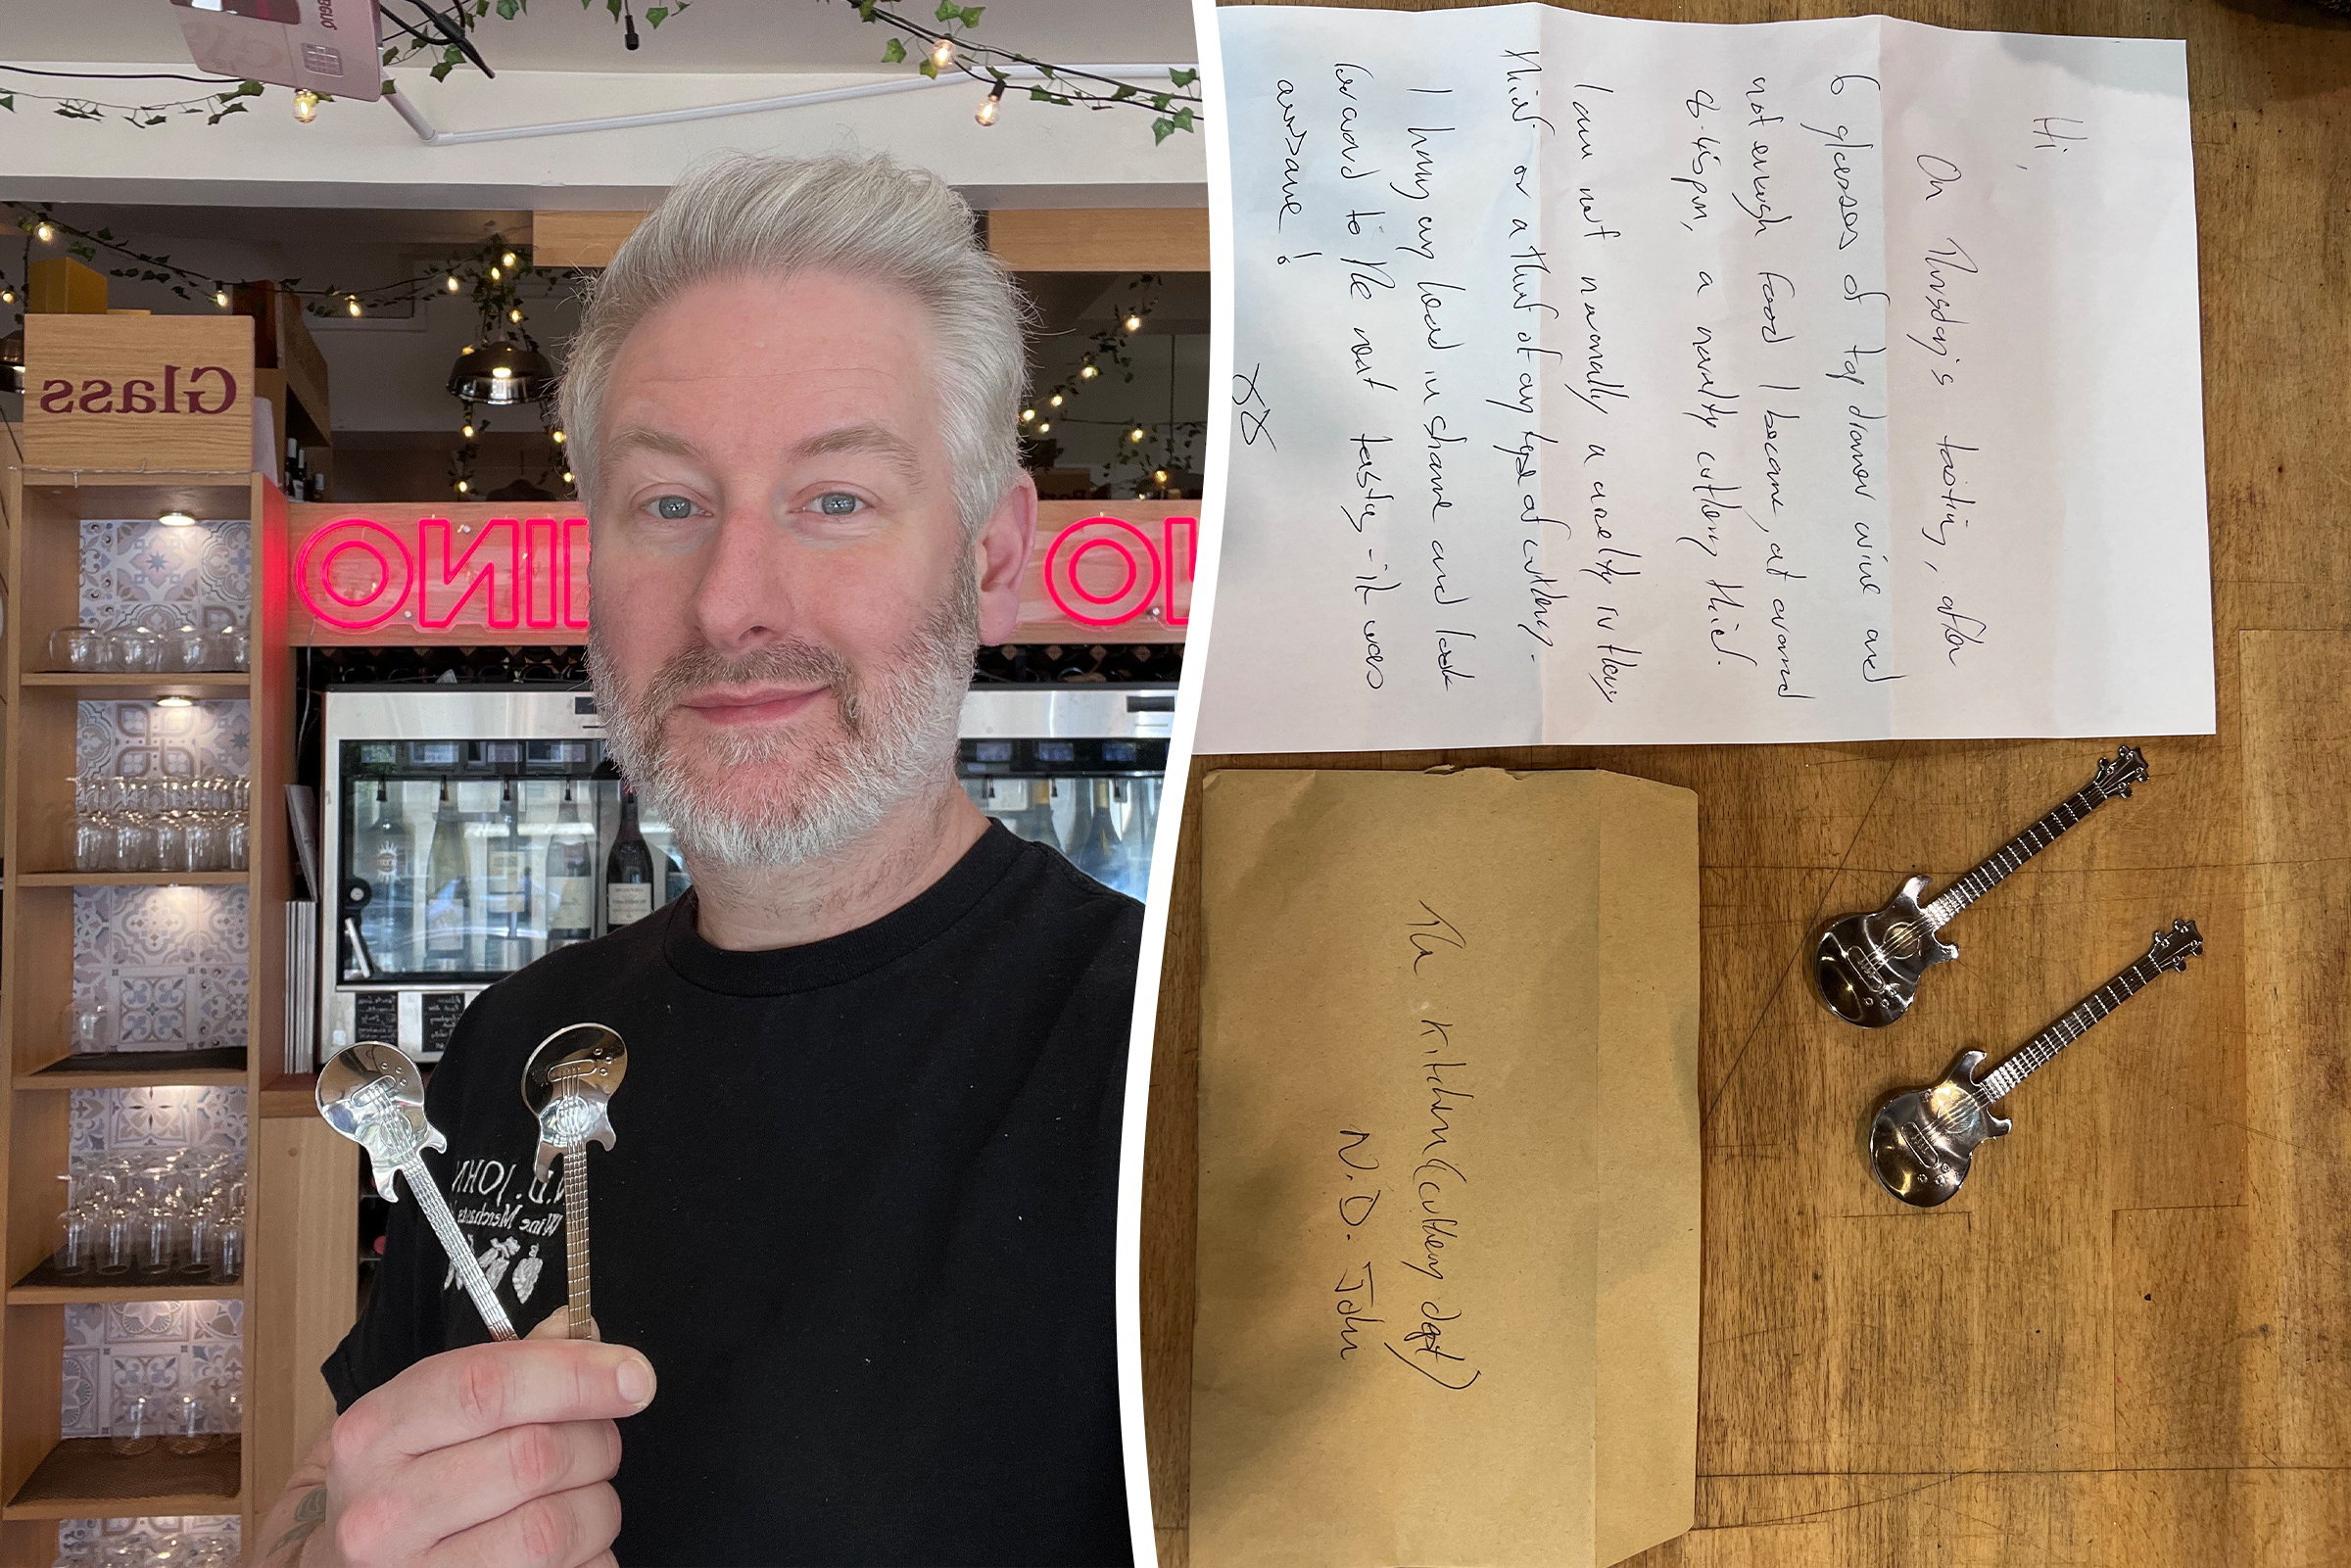 Glass
VINO
N.D. JOHN
Wine Merchants
Hi,
On Thursday's tasting, after
6 glasses of top drawer wine and
not enough food I became, at around
8.45pm, a novelty cutlery thief.
I am not normally a novelty cutlery
thief or a thief of any type of cutlery.
I hang my head in shame and look
forward to the next tasting - it was
awesome!
The Kitchen (cutlery dept)
N.D. John